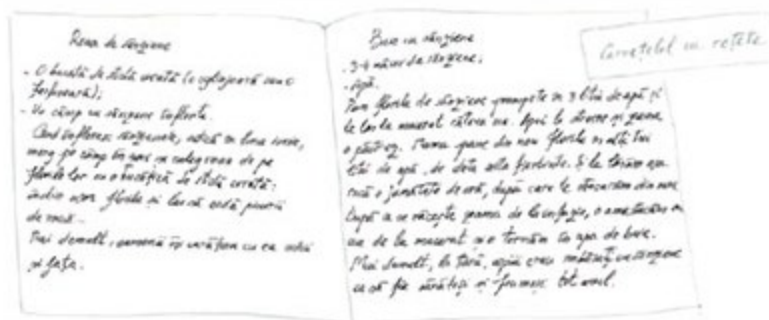 Roua de sânziene
- O bucată de sticlă curată (o oglinjoară sau o
farfurioară);
- Un câmp cu sânziene înflorite.
Când înfloresc sânzienele, adică în luna iunie,
merg pe câmp în zori și culeg roua de pe
florile lor cu o bucățică de sticlă curată:
îndoi ușor florile și las să cadă picurii
de rouă...
Mai demult, oamenii își curățau cu ea ochii
și fața.
Baie cu sânziene
- 3-4 mâini de sânziene;
- apă.
Pun florile de sânziene proaspete în 3 litri de apă și
le las la macerat câteva ore. Apoi le storc și zeama
o păstrez. Mama pune din nou florile în alți trei
litri de apă, de data asta fierbinte. Și le lăsăm așa
încă o jumătate de oră, după care le strecurăm din nou.
După ce se răcește zeama de la infuzie, o amestecăm cu
cea de la macerat și o turnăm în apa de baie.
Mai demult, la țară, copiii erau îmbăiați cu sânziene
ca să fie sănătoși și frumoși tot anul.
Carnețelul cu rețete